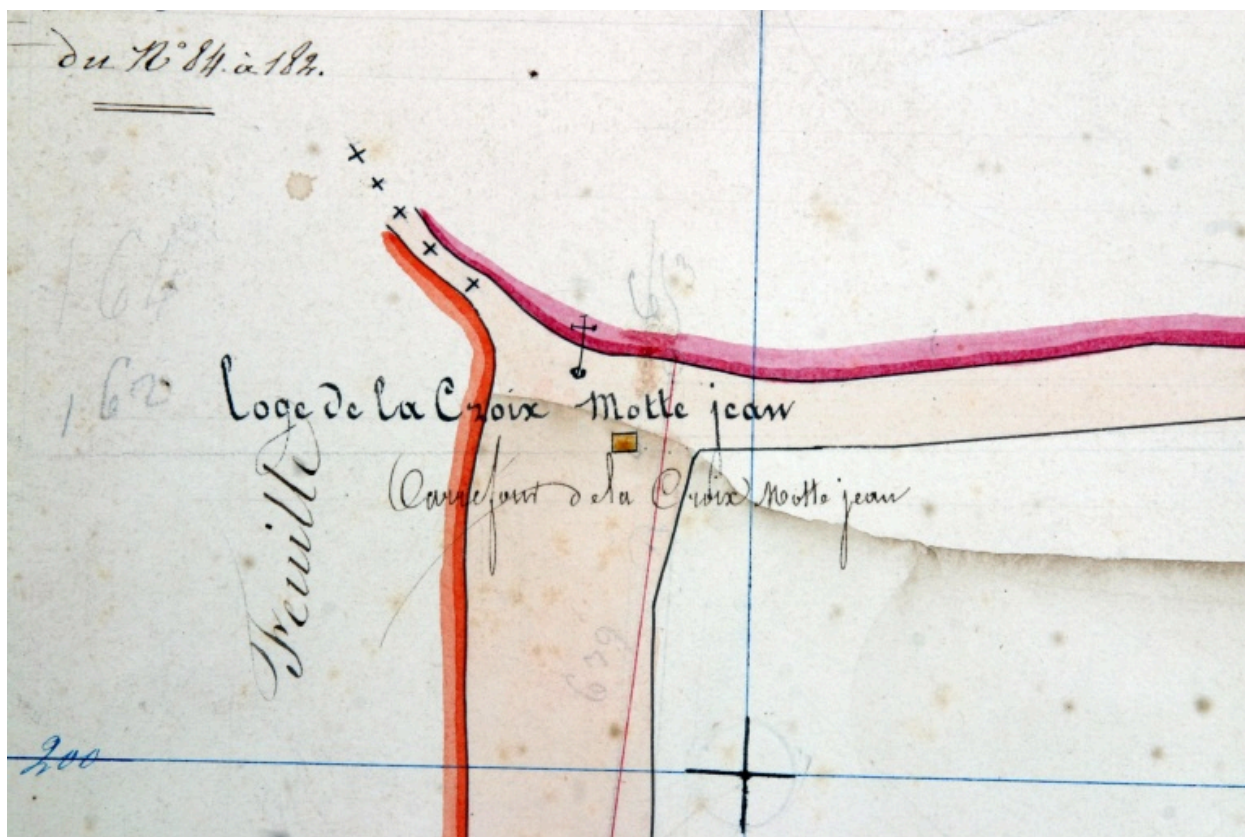 du N° 84 à 182.
Loge de la Croix Motte jean
Carrefour de la Croix Motte jean
Feuille
639
200